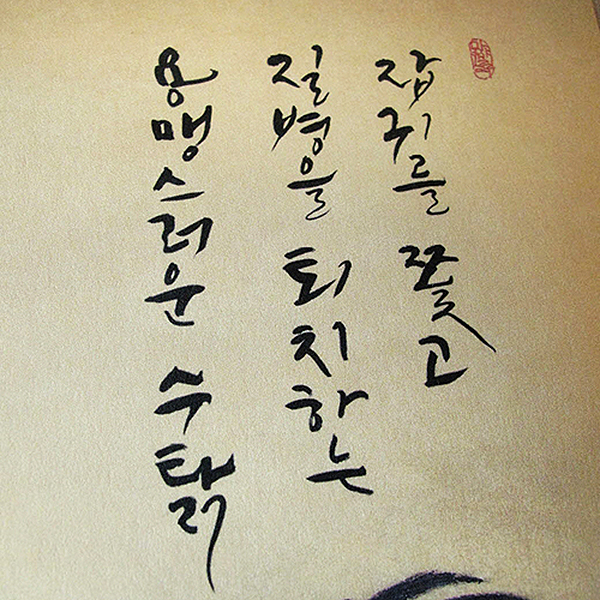 잡귀를 쫓고
질병을 퇴치하는
용맹스러운 수탉